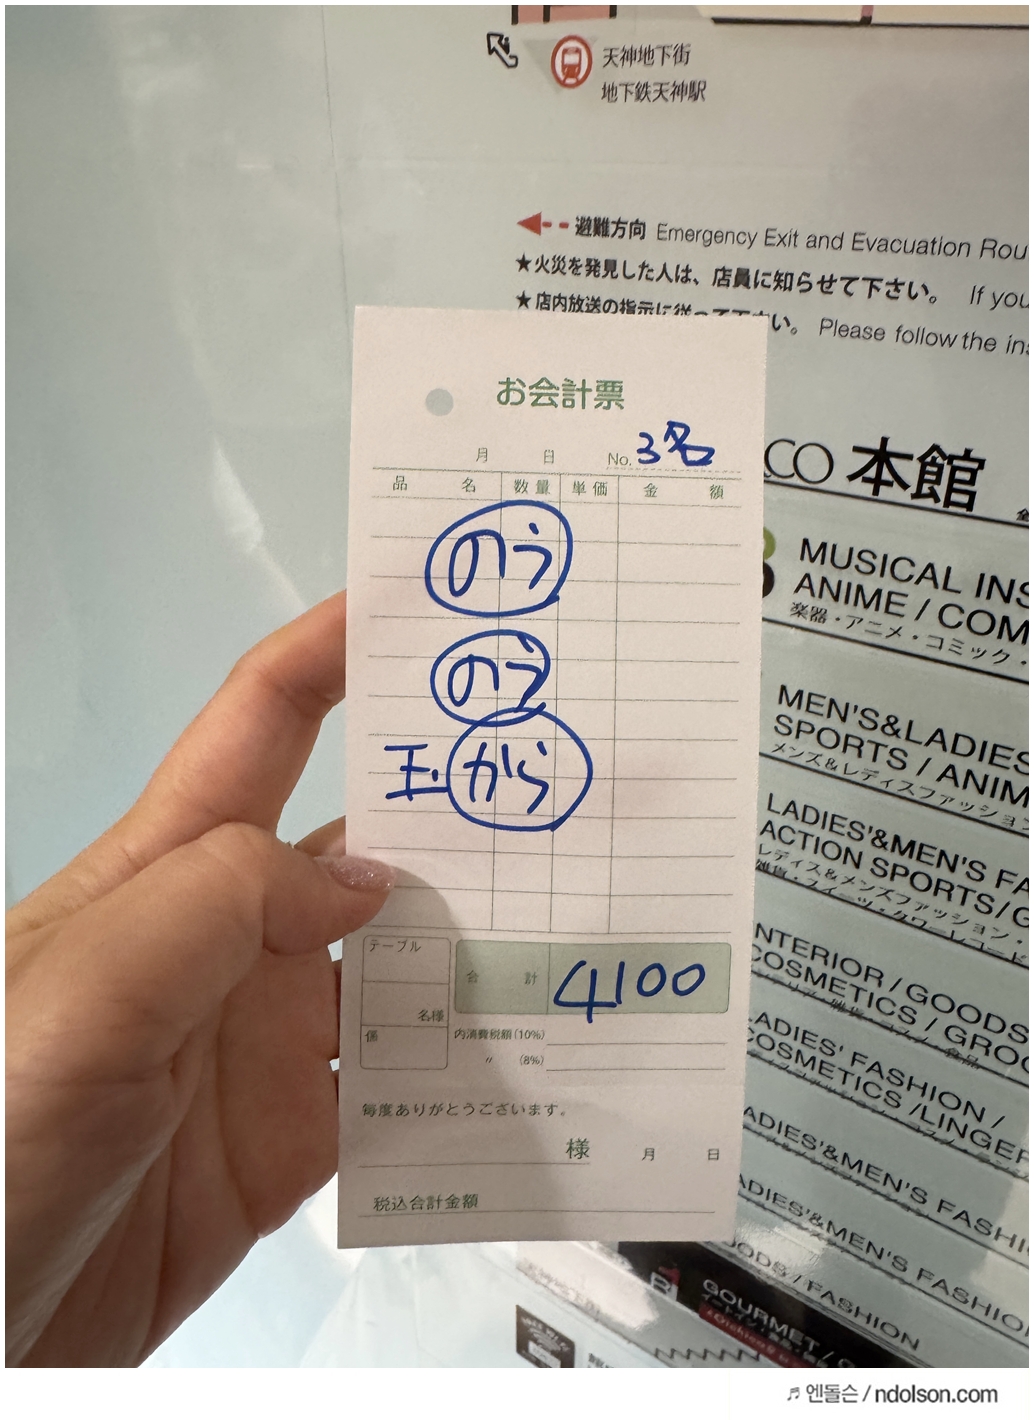 天神地下街
地下鉄天神駅
避難方向 Emergency Exit and Evacuation Rou
★火災を発見した人は、店員に知らせて下さい。 If you
★店内放送の指示に従って下さい。 Please follow the ins
お会計票
月 日 No. 3名
品 名 数量 単価 金 額
のう
のう
玉 から
テーブル
名様
係
合 計 4100
内消費税額(10%)
〃 (8%)
毎度ありがとうございます。
様 月 日
税込合計金額
CO 本館
MUSICAL INS
ANIME / COM
楽器・アニメ・コミック・
MEN'S&LADIES
SPORTS / ANIM
メンズ&レディスファッション
LADIES'&MEN'S FA
ACTION SPORTS/G
レディス&メンズファッション・
雑貨・スイーツ・タワーレコード
NTERIOR / GOODS
COSMETICS / GROC
LADIES' FASHION /
COSMETICS /LINGER
ADIES'&MEN'S FASH
ADIES'&MEN'S FASHI
ADIES'&MEN'S FASHIO
OODS / FASHION
GOURMET /
♬ 엔돌슨 / ndolson.com